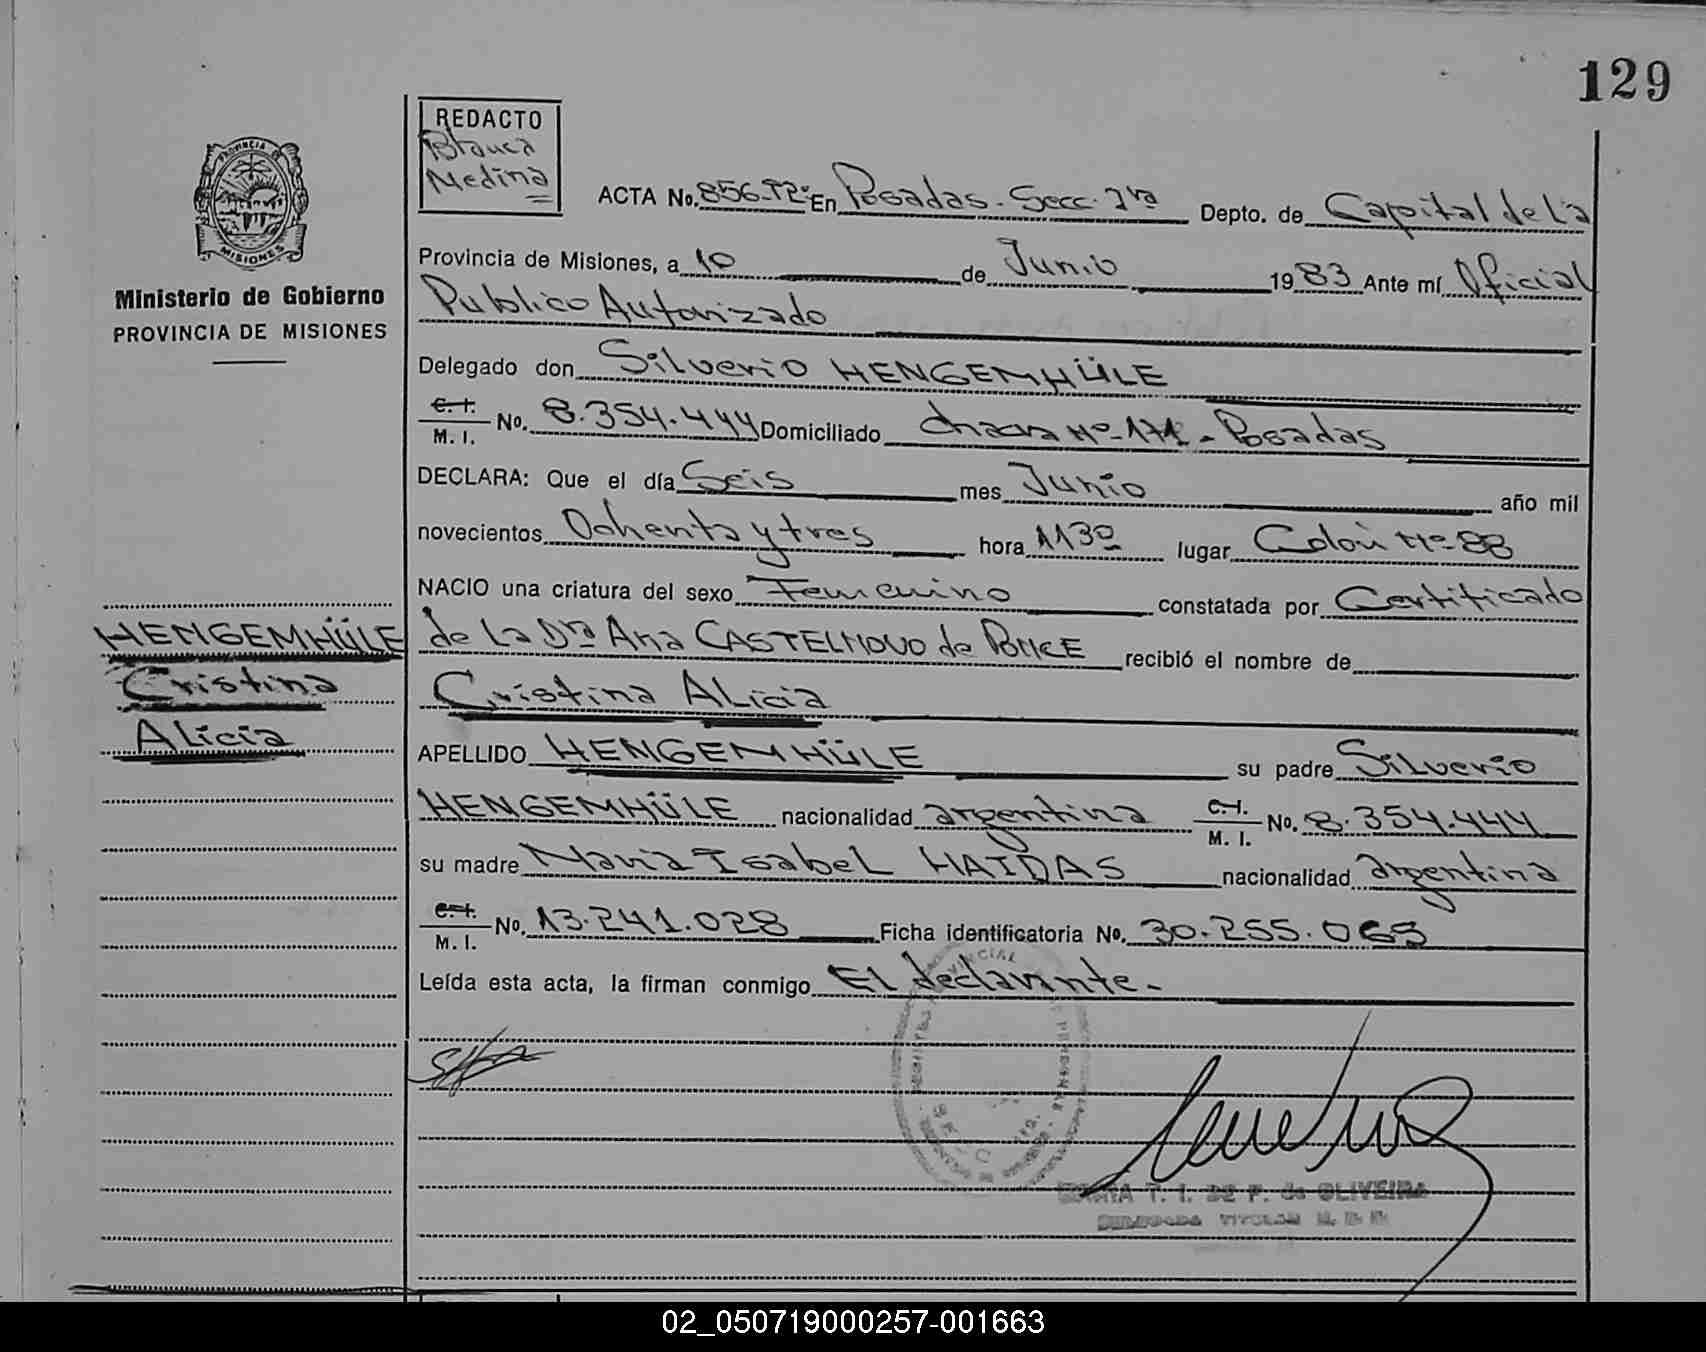 129
REDACTO
Blanca
Medina
PROVINCIA DE
MISIONES
Ministerio de Gobierno
PROVINCIA DE MISIONES
ACTA No. 856-T2- En Posadas - Secc. 1ra Depto. de Capital de La
Provincia de Misiones, a 10 de Junio 1983 Ante mí Oficial
Publico Autorizado
Delegado don Silverio HENGEMHÜLE
C. I. M. I. No. 8.354.444 Domiciliado chacra Nº-171- Posadas
DECLARA: Que el día Seis mes Junio año mil
novecientos Ochenta y tres hora 1130 lugar Colón Nº-88
NACIO una criatura del sexo Femenino constatada por Certificado
de La Dra Ana CASTELNOVO de PONCE recibió el nombre de
Cristina ALicia
APELLIDO HENGEMHÜLE su padre Silverio
HENGEMHÜLE nacionalidad argentina C. I. M. I. No. 8.354.444
su madre María Isabel HAIDAS nacionalidad argentina
C. I. M. I. No. 13.241.028 Ficha identificatoria No. 30.255.065
Leída esta acta, la firman conmigo EL declarante.-
HENGEMHÜLE
Cristina
ALicia
T. I. DE F. de OLIVEIRA
02_050719000257-001663